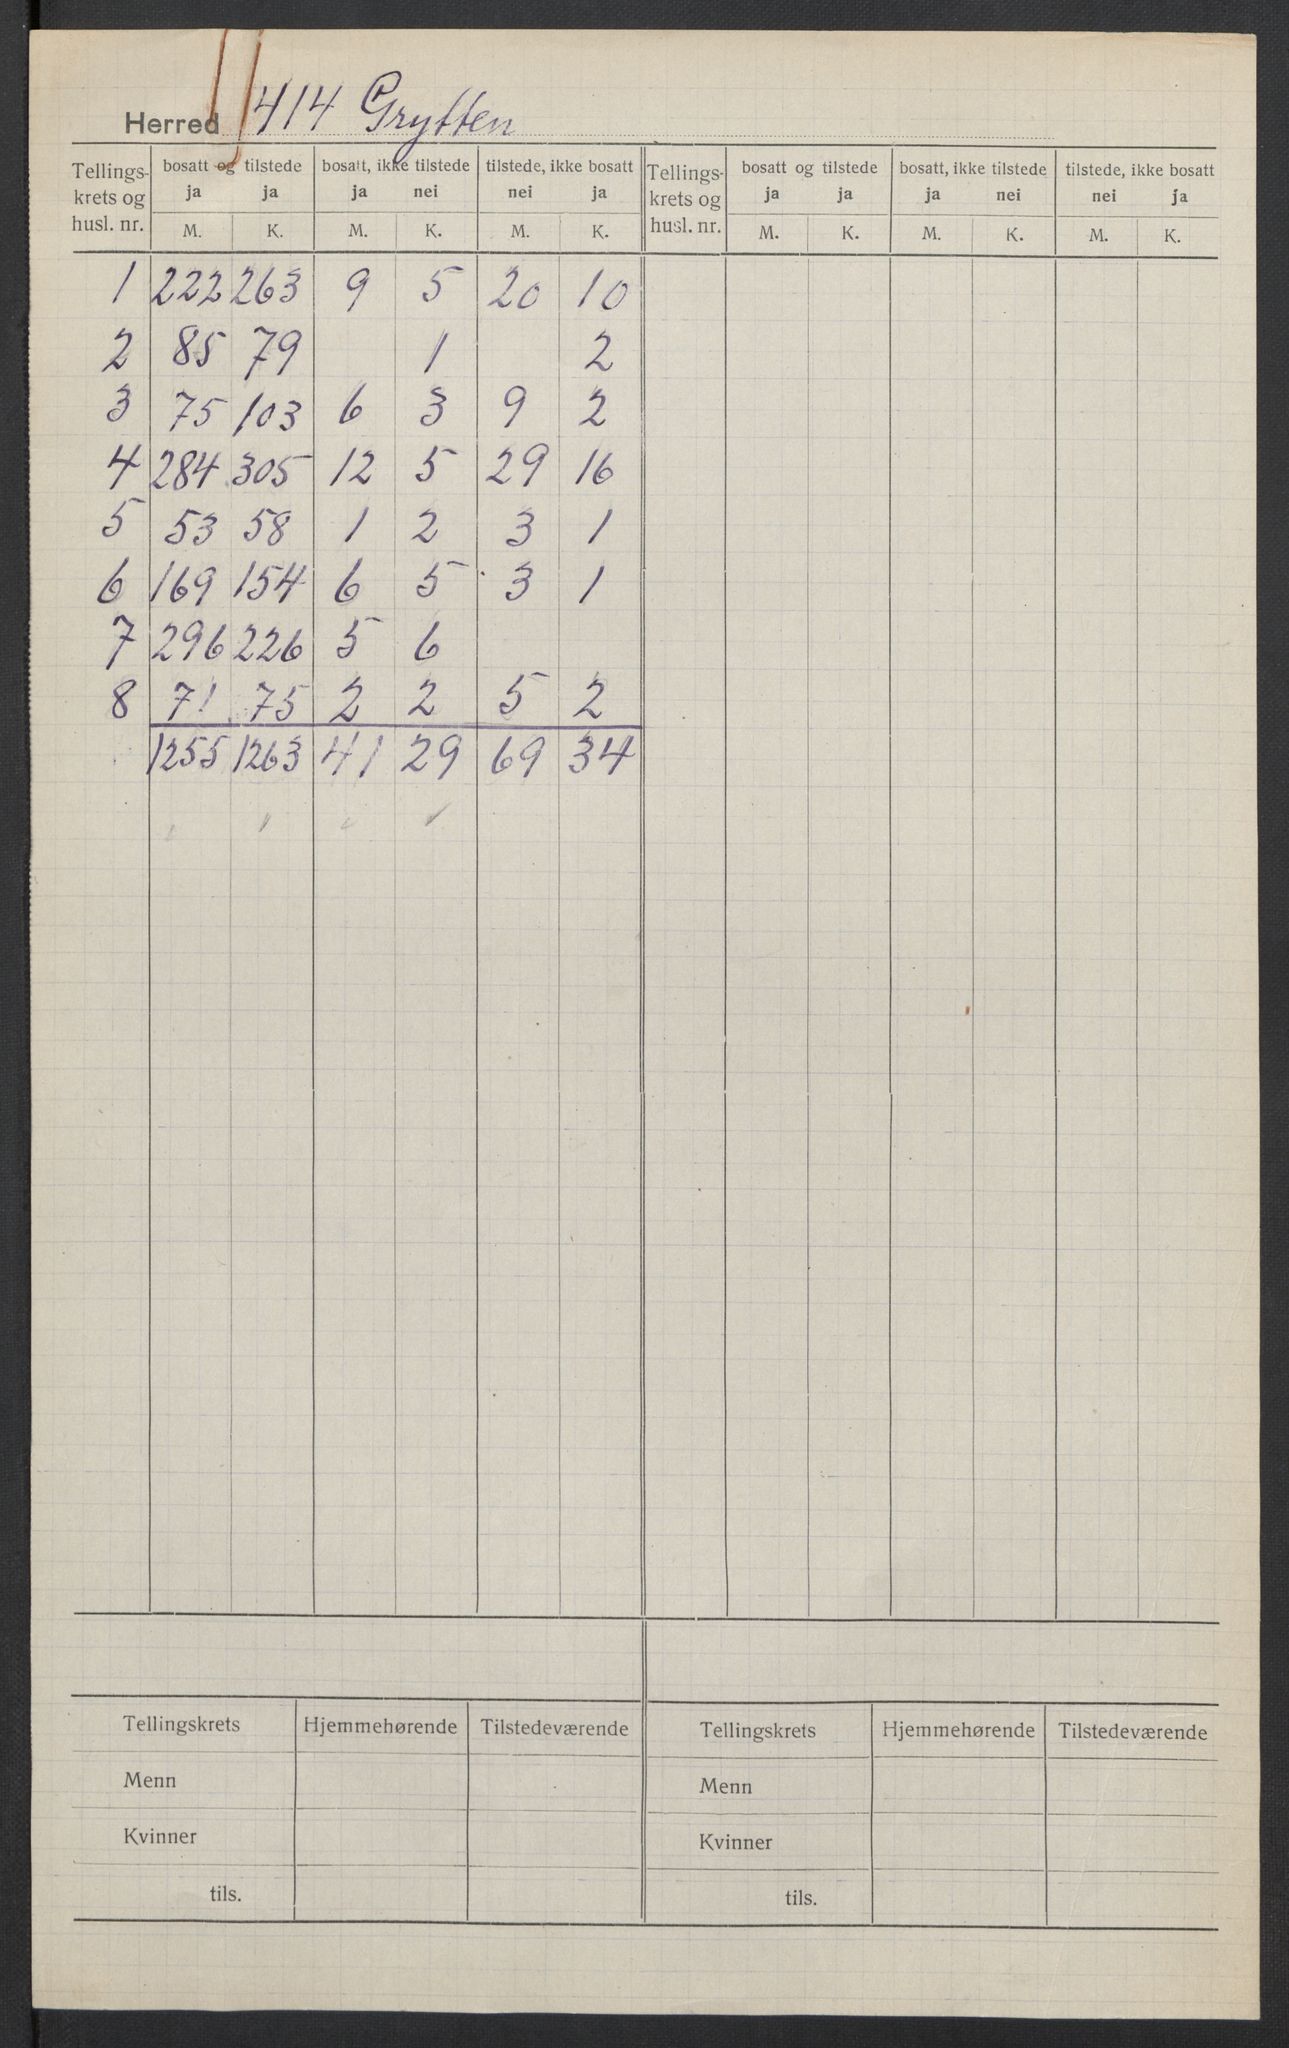 Herred 1414 Grytten
Tellings- krets og husl. nr. | bosatt og tilstede | bosatt, ikke tilstede | tilstede, ikke bosatt | Tellings- krets og husl. nr. | bosatt og tilstede | bosatt, ikke tilstede | tilstede, ikke bosatt
ja ja ja nei nei ja ja ja ja nei nei ja
M. K. M. K. M. K. M. K. M. K. M. K.
1 222 263 9 5 20 10
2 85 79 1 2
3 75 103 6 3 9 2
4 284 305 12 5 29 16
5 53 58 1 2 3 1
6 169 154 6 5 3 1
7 296 226 5 6
8 71 75 2 2 5 2
1255 1263 41 29 69 34
Tellingskrets Hjemmehørende Tilstedeværende Tellingskrets Hjemmehørende Tilstedeværende
Menn Menn
Kvinner Kvinner
tils. tils.